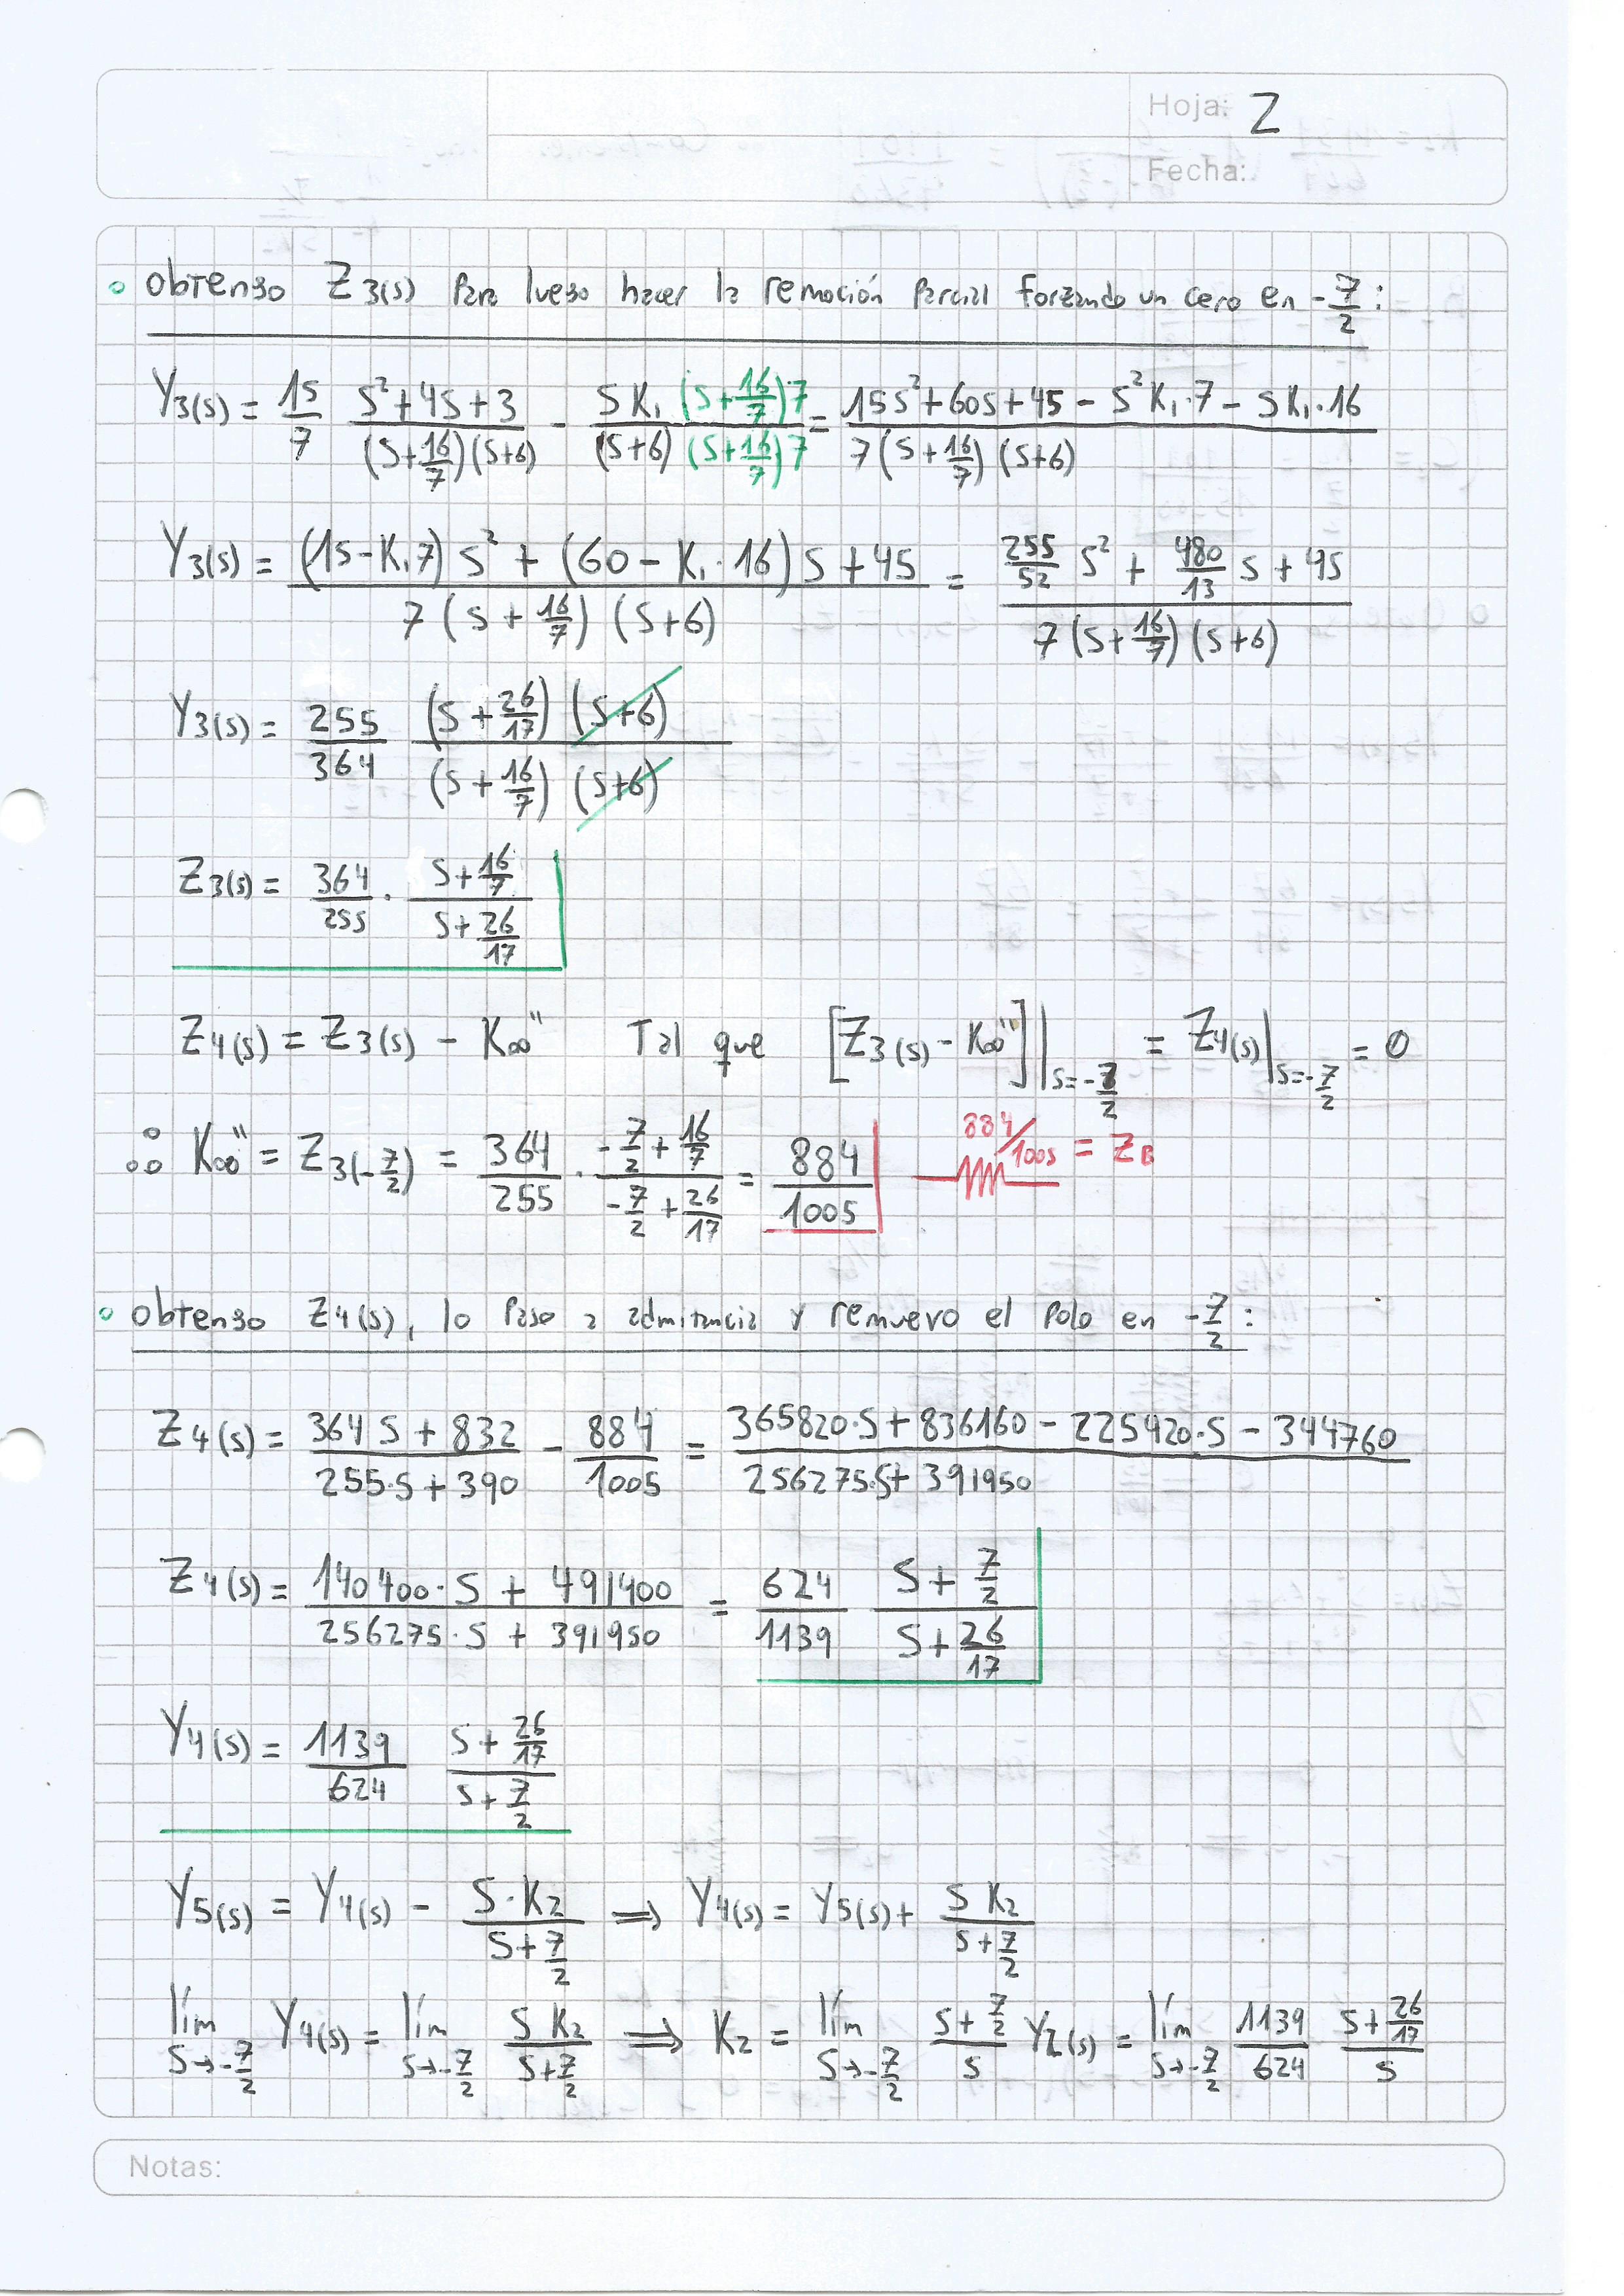 Hoja: 2
Fecha:
° obtengo Z3(s) Para luego hacer la remoción Parcial forzando un cero en -7/2 :
Y3(s) = 15/7 (s²+4s+3)/((s+16/7)(s+6)) - (s K1 (s+16/7)7)/((s+6)(s+16/7)7) = (15s²+60s+45 - s²K1·7 - sK1·16)/(7(s+16/7)(s+6))
Y3(s) = ((15-K1 7) s² + (60 - K1·16) s + 45)/(7(s+16/7)(s+6)) = (255/52 s² + 480/13 s + 45)/(7(s+16/7)(s+6))
Y3(s) = 255/364 ((s+26/17)(s+6))/((s+16/7)(s+6))
Z3(s) = 364/255 · (s+16/7)/(s+26/17)
Z4(s) = Z3(s) - K∞" Tal que [Z3(s) - K∞"]|s=-7/2 = Z4(s)|s=-7/2 = 0
∴ K∞" = Z3(-7/2) = 364/255 · (-7/2+16/7)/(-7/2+26/17) = 884/1005 884/1005 = ZB
° obtengo Z4(s), lo Paso a admitancia y remuevo el Polo en -7/2 :
Z4(s) = (364 s + 832)/(255·s + 390) - 884/1005 = (365820·s + 836160 - 225420·s - 344760)/(256275·s + 391950)
Z4(s) = (140400·s + 491400)/(256275·s + 391950) = 624/1139 (s+7/2)/(s+26/17)
Y4(s) = 1139/624 (s+26/17)/(s+7/2)
Y5(s) = Y4(s) - (s·K2)/(s+7/2) ⟹ Y4(s) = Y5(s) + (s K2)/(s+7/2)
lím s→-7/2 Y4(s) = lím s→-7/2 (s K2)/(s+7/2) ⟹ K2 = lím s→-7/2 (s+7/2)/s Y2(s) = lím s→-7/2 1139/624 (s+26/17)/s
Notas: